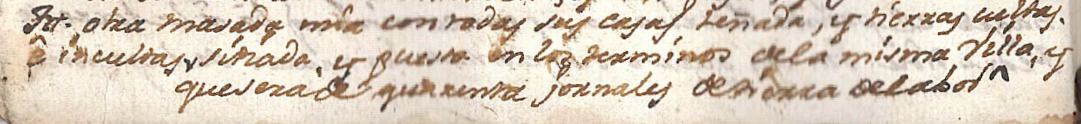 Itt. otra masada mia con todas sus casas, señada, y tierras cultas.
é incultas, sitiada, y puesta en los terminos de la misma Villa, y
que sera de quarenta jornales de tierra de labor